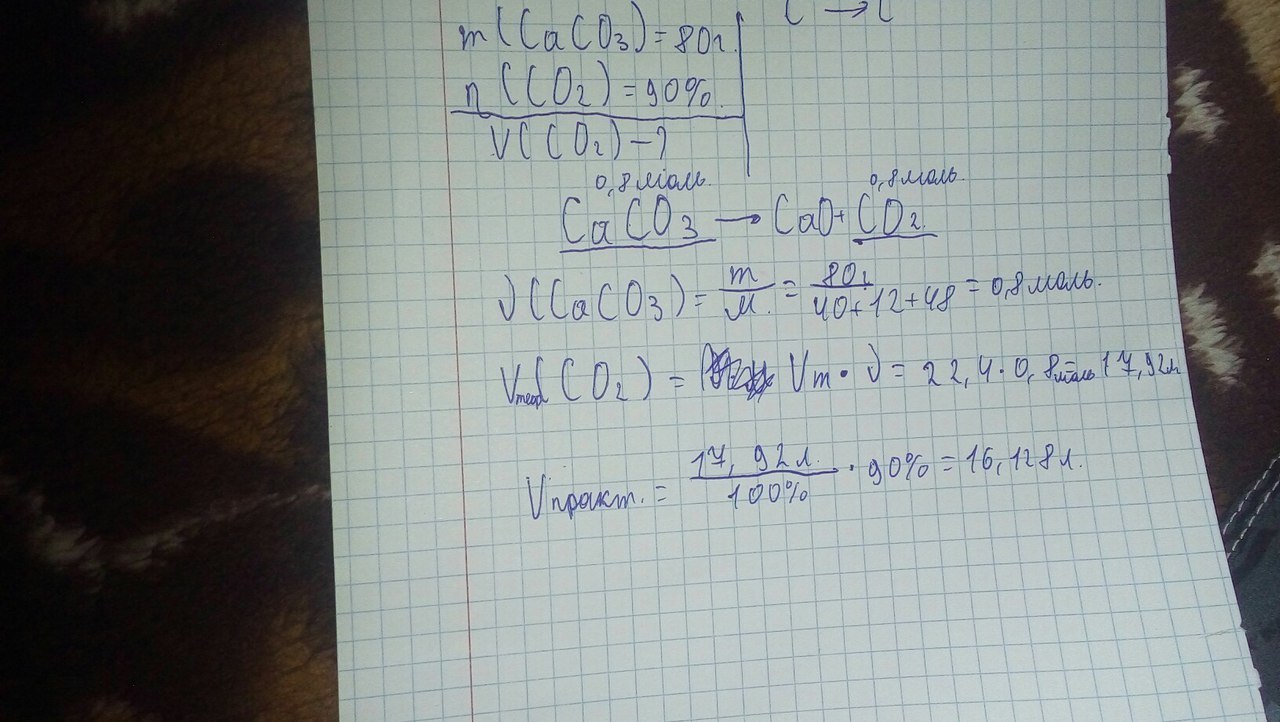 m(CaCO3)=80г.
η(CO2)=90%.
V(CO2)-?
0,8моль. 0,8моль.
CaCO3 → CaO+CO2
ν(CaCO3)= m/M. = 80г/40+12+48 = 0,8моль.
Vтеор(CO2) = Vm·ν = 22,4·0,8моль=17,92л
Vпракт. = 17,92л./100% · 90% = 16,128л.